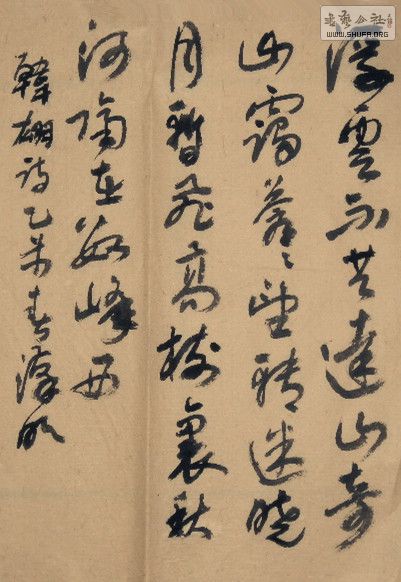 書藝公社
WWW.SHUFA.ORG
浮雲不共山齊
山靄蒼〻望轉迷曉
月暫飛高樹裏秋
河隔在數峰西
韓翃詩乙未春